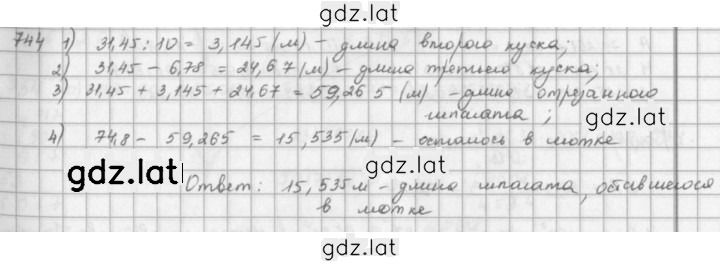 gdz.lat
744 1) 31,45 : 10 = 3,145 (м) - длина второго куска;
2) 31,45 - 6,78 = 24,67 (м) - длина третьего куска;
3) 31,45 + 3,145 + 24,67 = 59,265 (м) - длина отрезанного
шпагата;
gdz.lat
4) 74,8 - 59,265 = 15,535 (м) - осталось в мотке
gdz.lat
gdz.lat
Ответ: 15,535 м - длина шпагата, оставшегося
в мотке
gdz.lat